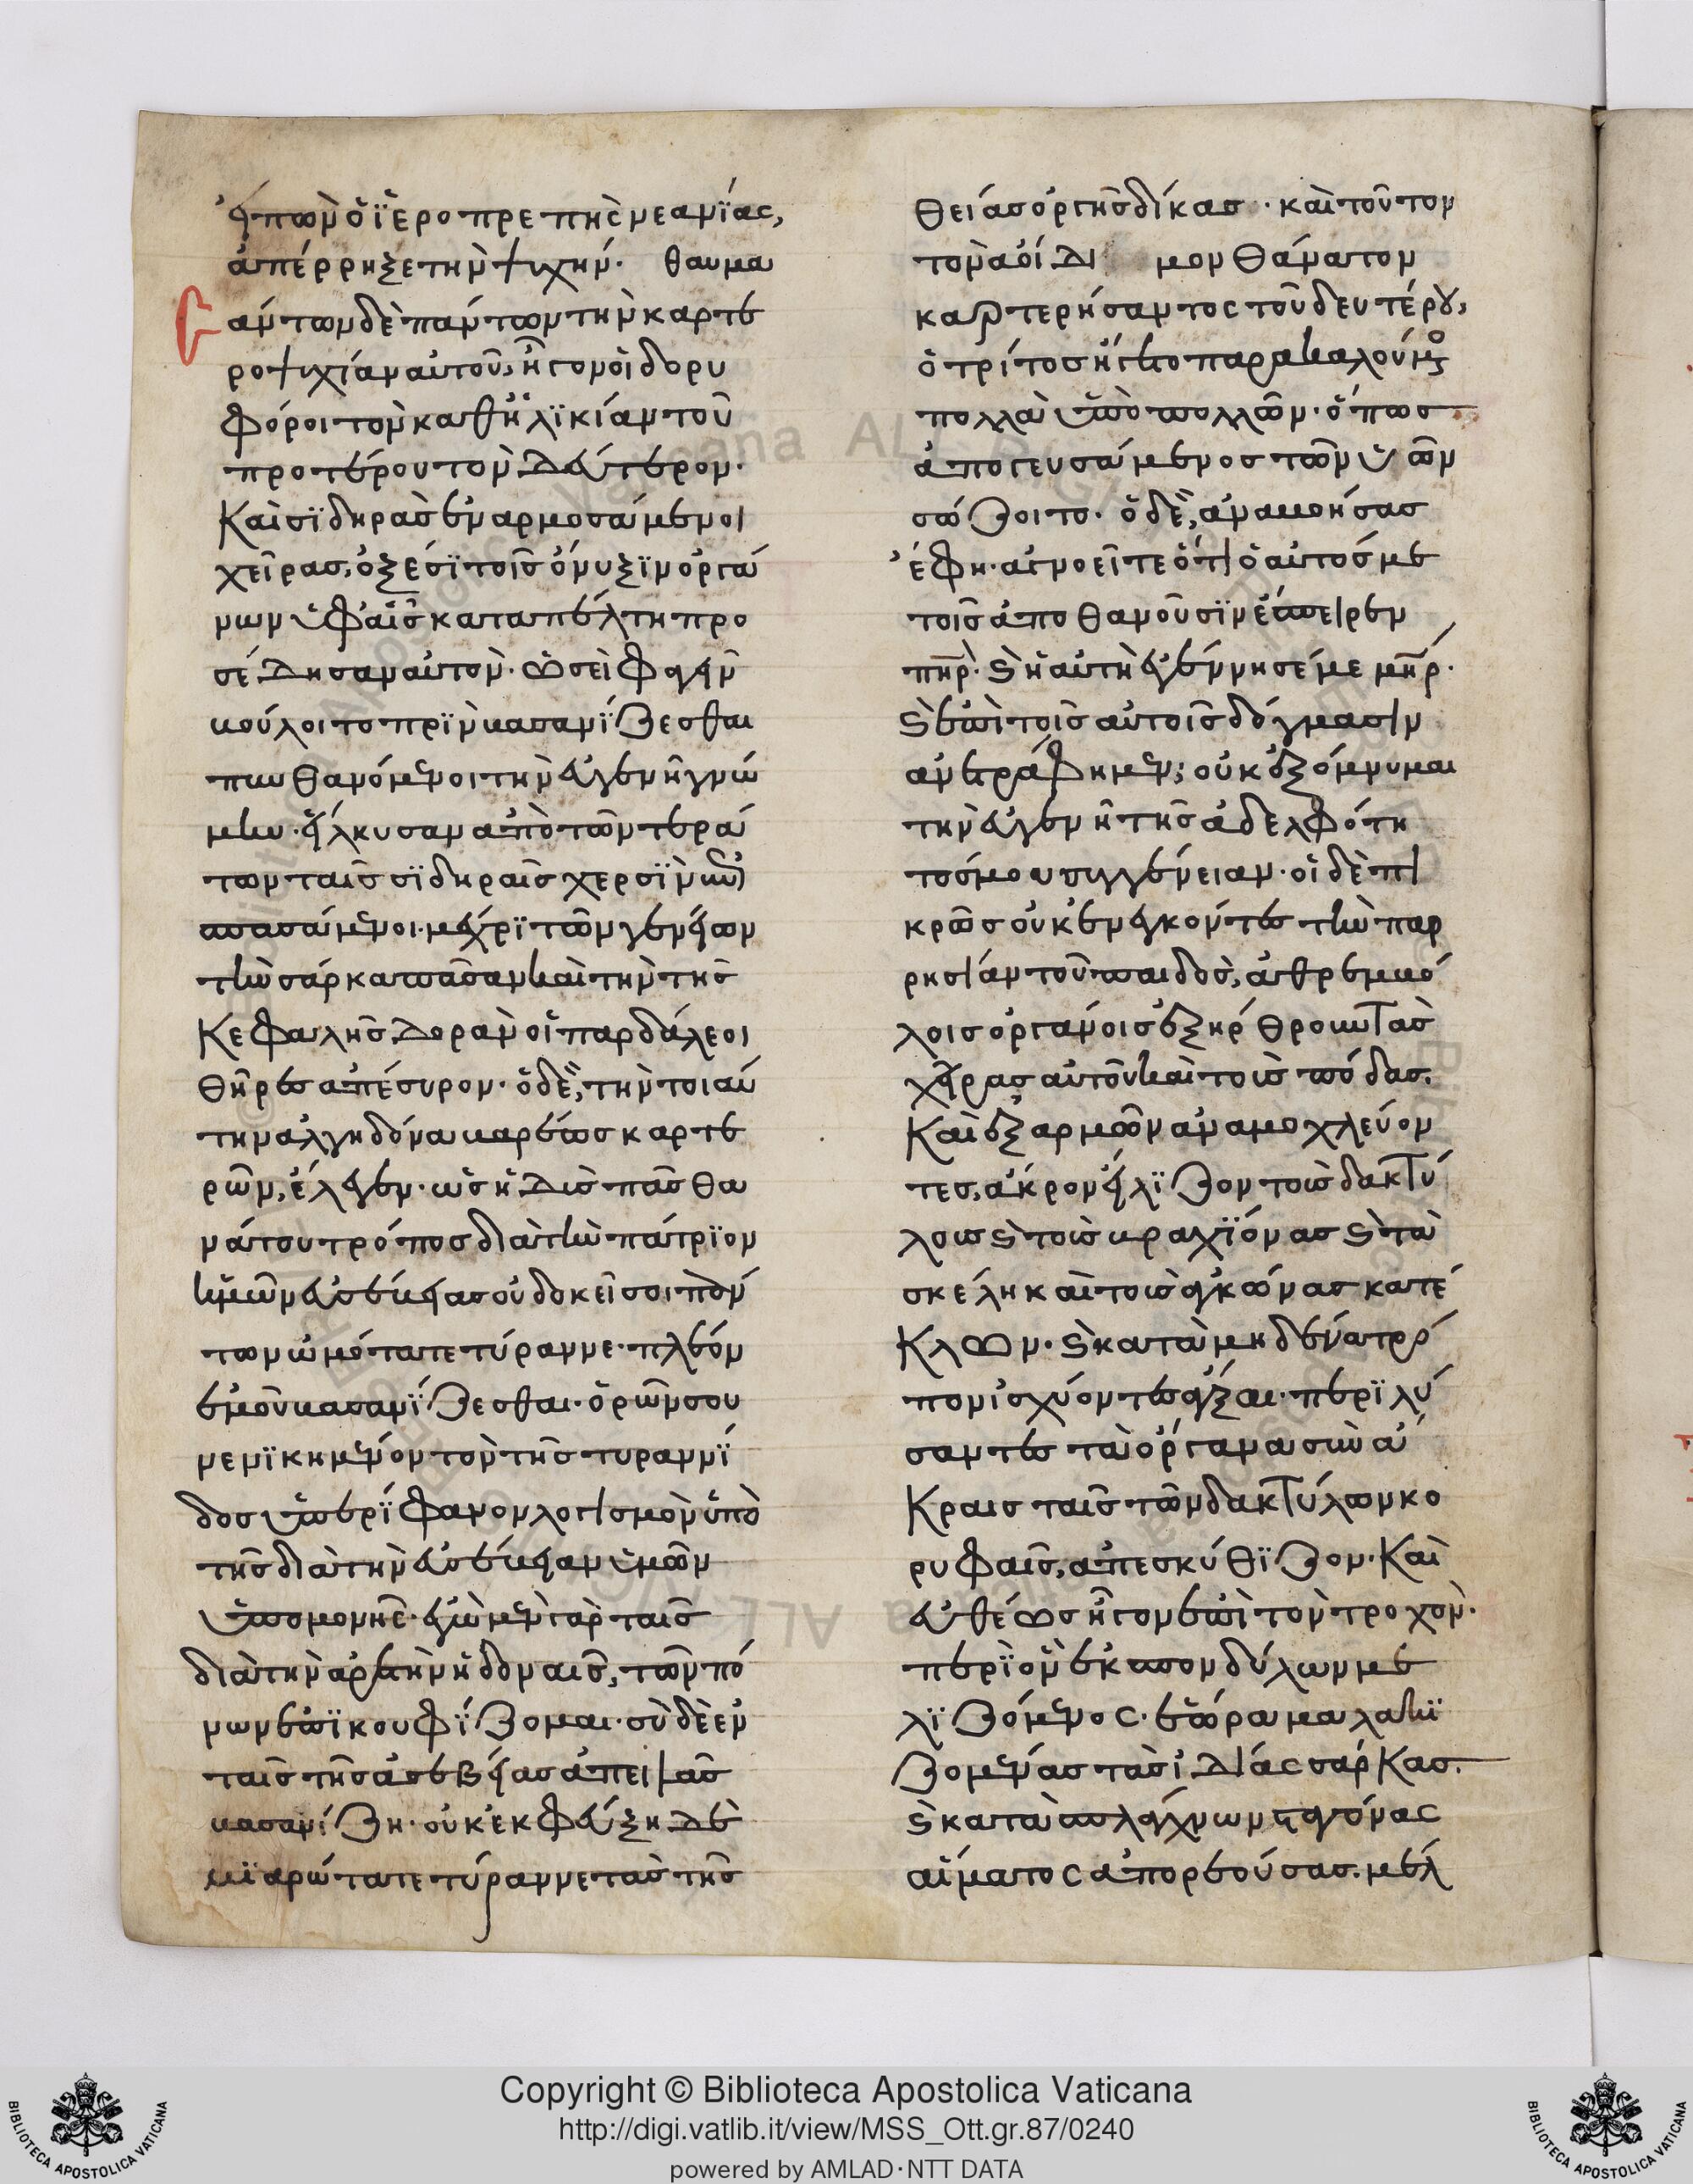 εἰπὼν ὁ ἱεροπρεπὴς νεανίας,
ἀπέρρηξε τὴν ψυχήν· θαυμα
σάντων δὲ πάντων τὴν καρτε
ροψυχίαν αὐτοῦ, ἦγον οἱ δορυ
φόροι τὸν καθ' ἡλικίαν τοῦ
προτέρου τὸν δεύτερον·
Καὶ σιδηρὰς ἐναρμοσάμενοι
χεῖρας, ὀξέσι τοῖς ὄνυξιν ὀργά
νων ὑφ' αἷς καταπέλτη προ
σέδησαν αὐτόν· ὡς εἰ φαγεῖν
βούλοιτο πρὶν βασανίζεσθαι
πυθανόμενοι τὴν εὐγενῆ γνώ
μην· εἵλκυσαν ἀπὸ τῶν τερά
των ταῖς σιδηραῖς χερσὶν
σπασάμενοι· μέχρι τῶν γενείων
τὴν σάρκα πᾶσαν καὶ τὴν τῆς
Κεφαλῆς δορὰν οἱ παρδάλεοι
θῆρες ἀπέσυρον· ὁ δὲ, τὴν τοιαύ
την ἀλγηδόνα βαρέως καρτε
ρῶν, ἔλεγεν· ὡς ἡδὺς πᾶς θα
νάτου τρόπος διὰ τὴν πάτριον
ἡμῶν εὐσέβειας οὐ δοκεῖ σοι πάν
των ὠμότατε τύραννε· πλέον
ἐμοῦ βασανίζεσθαι· ὁρῶν σου
νενικημένον τὸν τῆς τυραννί
δος ὑπερίφανον λογισμὸν ὑπὸ
τῆς διὰ τὴν εὐσέβειαν ὑμῶν
ὑπομονῆς· ἐγὼ μὲν γὰρ ταῖς
διὰ τὴν ἀρετὴν ἡδοναῖς, τῶν πό
νων ἐπικουφίζομαι· σὺ δὲ ἐν
ταῖς τῆς ἀσεβείας ἀπειλαῖς
βασανίζη· οὐκ ἐκφεύξη δὲ
μιαρώτατε τύραννε τὰς τῆς
θείας ὀργῆς δίκας· καὶ τοῦτον
τὸν ἀοίδιμον θάνατον
καρτερήσαντος τοῦ δευτέρου,
ὁ τρίτος ἤγετο παρακαλούμενος
πολλὰ ὑπὸ πολλῶν· ὅπως
ἀπογευσάμενος τῶν ὑῶν
σώζοιτο· ὁ δὲ, ἀναβοήσας
ἔφη· ἀγνοεῖτε ὅτι ὁ αὐτός με
τοῖς ἀποθανοῦσιν ἔσπειρεν
πηρ· Ϛ ἡ αὐτὴ ἐγέννησέ με μηρ·
Ϛ ἐπὶ τοῖς αὐτοῖς δόγμασιν
ἀνετράφημεν; οὐκ ἐξόμνυμαι
τὴν εὐγενῆ τῆς ἀδελφότη
τός μου συγγένειαν· οἱ δὲ πι
κρῶς οὐκ ἐνεγκόντες τὴν παρ
ρησίαν τοῦ παιδὸς, ἀρθρεμβό
λοις ὀργάνοις ἐξηρθρουν τὰς
χεῖρας αὐτοῦ καὶ τοὺς πόδας.
Καὶ ἐξ ἁρμῶν ἀναμοχλεύον
τες, ἀκρονείλιζον τοὺς δακτύ
λους Ϛ τοὺς βραχίονας Ϛ τὰ
σκέλη καὶ τοὺς ἀγκῶνας κατέ
Κλων· Ϛ κατὰ μηδένα τρό
πον ἰσχύοντες ἄγξαι· περιλύ
σαντες τὰ ὄργανα σὺν ἄ
Κραις ταῖς τῶν δακτύλων κο
ρυφαῖς, ἀπεσκύθιζον· Καὶ
εὐθέως ἦγον ἐπὶ τὸν τροχόν·
περὶ ὃν ἐκ σπονδύλων με
λιζόμενος· ἑώρα μαλακι
ζομένας τὰς ἰδίας σάρκας.
Ϛ κατὰ σπλάγχνων σταγόνας
αἵματος ἀπορεούσας. μέλ
Copyright © Biblioteca Apostolica Vaticana
http://digi.vatlib.it/view/MSS_Ott.gr.87/0240
powered by AMLAD·NTT DATA
BIBLIOTECA APOSTOLICA VATICANA
BIBLIOTECA APOSTOLICA VATICANA